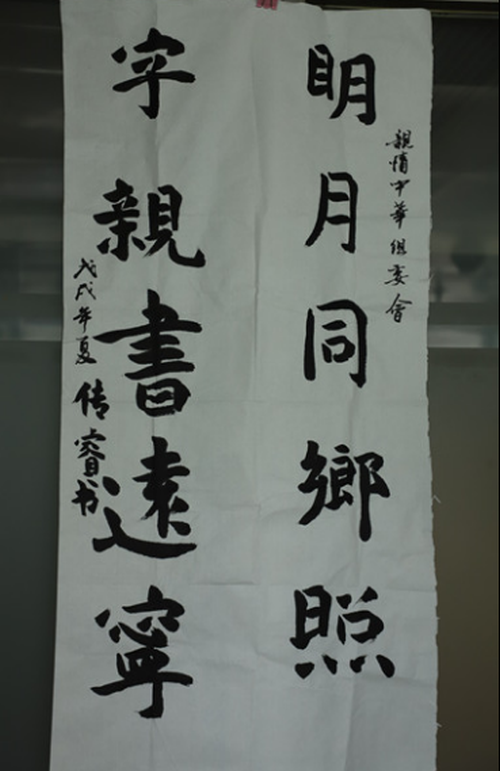 親情中華组委會
明月同鄉照
字親書遠寧
戊戌年夏 传 书